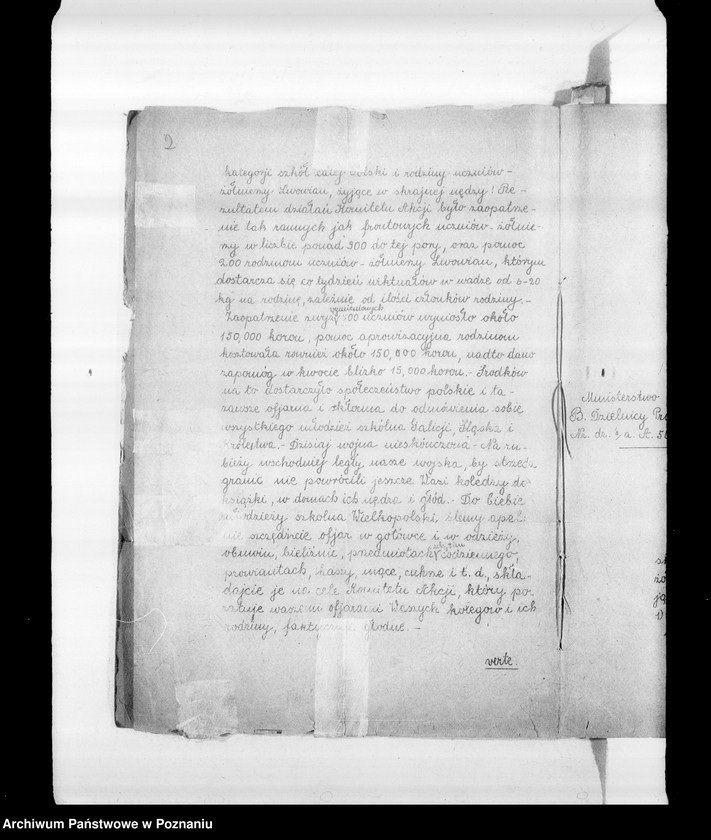 2
kategorji szkół całej Polski i rodziny uczniów -
żołnierzy Lwowian, żyjące w skrajnej nędzy! Re-
zultatem działań Komitetu Akcji było zaopatrze-
nie tak rannych jak frontowych uczniów - żołnie-
rzy w liczbie ponad 300 do tej pory, oraz pomoc
200 rodzinom uczniów - żołnierzy Lwowian, którym
dostarcza się co tydzień wiktuałów w wadze od 6-20
kg na rodzinę, zależnie od ilości członków rodziny. -
Zaopatrzenie zwyż wymienionych 300 uczniów wyniosło około
150,000 koron, pomoc aprowizacyjna rodzinom
kosztowała również około 150,000 koron, nadto dano
zapomóg w kwocie blizko 15,000 koron. - Środków
na to dostarczyło społeczeństwo polskie i ta-
zawsze ofjarna i skłonna do odmówienia sobie
wszystkiego młodzież szkolna Galicji, Śląska i
Królestwa. - Dzisiaj wojna nieskończona - Na ru-
bieży wschodniej legły nasze wojska, by strzec
granic nie powrócili jeszcze Wasi koledzy do
książki, w domach ich nędza i głód. - Do Ciebie
młodzieży szkolna Wielkopolski ślemy apel
nie szczędźcie ofjar w gotówce i w odzieży,
obuwiu, bieliźnie, przedmiotach użytku codziennego,
prowiantach, kaszy, mące, cukrze i t. d., skła-
dajcie je na cele Komitetu Akcji, który po-
ratuje waszemi ofjarami Waszych kolegów i ich
rodziny, faktycznie głodne. -
verte.
Ministerstwo
B. Dzielnicy Pru
Nz. dz. A. 5
Archiwum Państwowe w Poznaniu